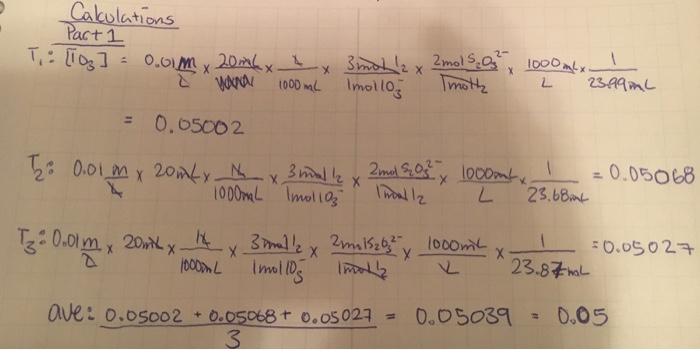 Calculations
Part 1
T₁: [IO₃] = 0.01 m/L × 20mL × L/1000mL × 3mol I₂/1mol IO₃⁻ × 2mol S₂O₃²⁻/1mol I₂ × 1000mL/L × 1/23.99mL
= 0.05002
T₂: 0.01 m/L × 20mL × L/1000mL × 3mol I₂/1mol IO₃⁻ × 2mol S₂O₃²⁻/1mol I₂ × 1000mL/L × 1/23.68mL = 0.05068
T₃: 0.01 m/L × 20mL × L/1000mL × 3mol I₂/1mol IO₃⁻ × 2mol S₂O₃²⁻/1mol I₂ × 1000mL/L × 1/23.87mL = 0.05027
ave: 0.05002 + 0.05068 + 0.05027 / 3 = 0.05039 = 0.05